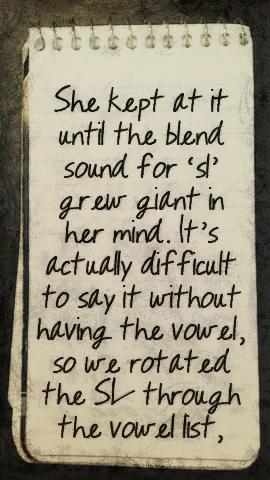 She kept at it
until the blend
sound for ‘sl’
grew giant in
her mind. It’s
actually difficult
to say it without
having the vowel,
so we rotated
the SL through
the vowel list,